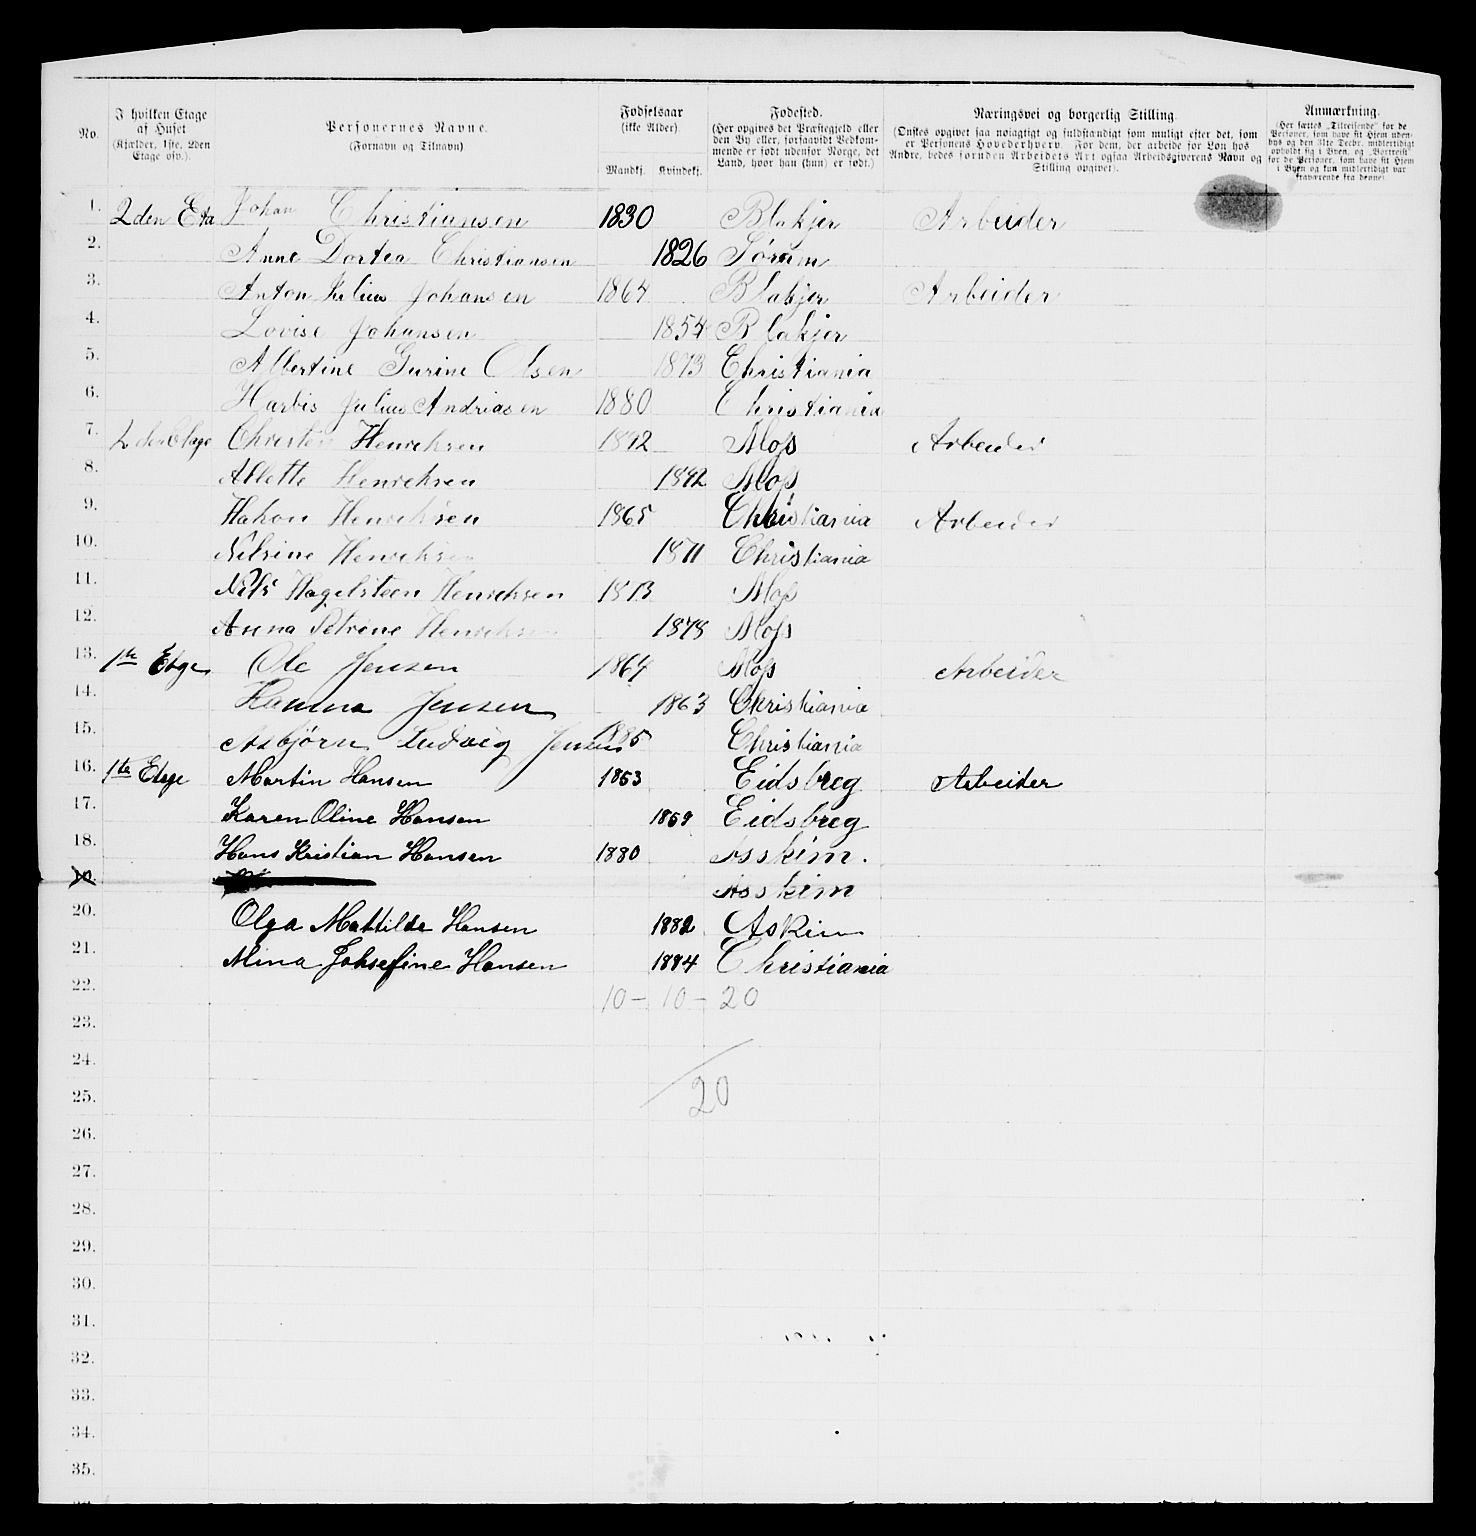 No.
I hvilken Etage af Huset (Kjælder, 1ste, 2den Etage osv.).
Personernes Navne. (Fornavn og Tilnavn)
Fødselsaar (ikke Alder). Mandkj. Kvindekj.
Fødested. (Her opgives det Præstegjeld eller den By eller, forsaavidt Vedkommende er født udenfor Norge, det Land, hvor han (hun) er født.)
Næringsvei og borgerlig Stilling. (Ønskes opgivet saa nøiagtigt og fuldstændigt som muligt efter det, som er Personens Hovederhverv. For dem, der arbeide for Løn hos Andre, bedes foruden Arbeidets Art ogsaa Arbeidsgiverens Navn og Stilling opgivet).
Anmærkning. (Her sættes „Tilreisende" for de Personer, som have sit Hjem udenbys og den 31te Decbr. midlertidigt opholdt sig i Byen, og „Bortreist" for de Personer, som have sit Hjem i Byen og kun midlertidigt var fraværende fra denne)
1. 2den Eta Johan Christiansen 1830 Blakjer Arbeider
2. Anne Dortea Christiansen 1826 Sørum
3. Anton Julius Johansen 1864 Blakjer Arbeider
4. Lovise Johansen 1854 Blakjer
5. Albertine Gurine Olsen 1873 Christiania
6. Harbis Julius Andriasen 1880 Christiania
7. 2den Etage Christen Henriksen 1842 Moss Arbeider
8. Allette Henriksen 1842 Moss
9. Hakon Henriksen 1865 Christiania Arbeider
10. Nilsine Henriksen 1871 Christiania
11. Nils Hagelsteen Henriksen 1873 Moss
12. Anna Petrine Henriksen 1878 Moss
13. 1te Etge Ole Jensen 1864 Moss Arbeider
14. Hanna Jensen 1863 Christiania
15. Asbjørn Ludvig Jensen 1885 Christiania
16. 1te Etage Martin Hansen 1853 Eidsbreg Arbeider
17. Karen Oline Hansen 1859 Eidsbreg
18. Hans Kristian Hansen 1880 Asskim.
19. Asskim
20. Olga Mattilde Hansen 1882 Askim
21. Mina Johsefine Hansen 1884 Christiania
22. 10 - 10 - 20
23.
24.
25. 20
26.
27.
28.
29.
30.
31.
32.
33.
34.
35.